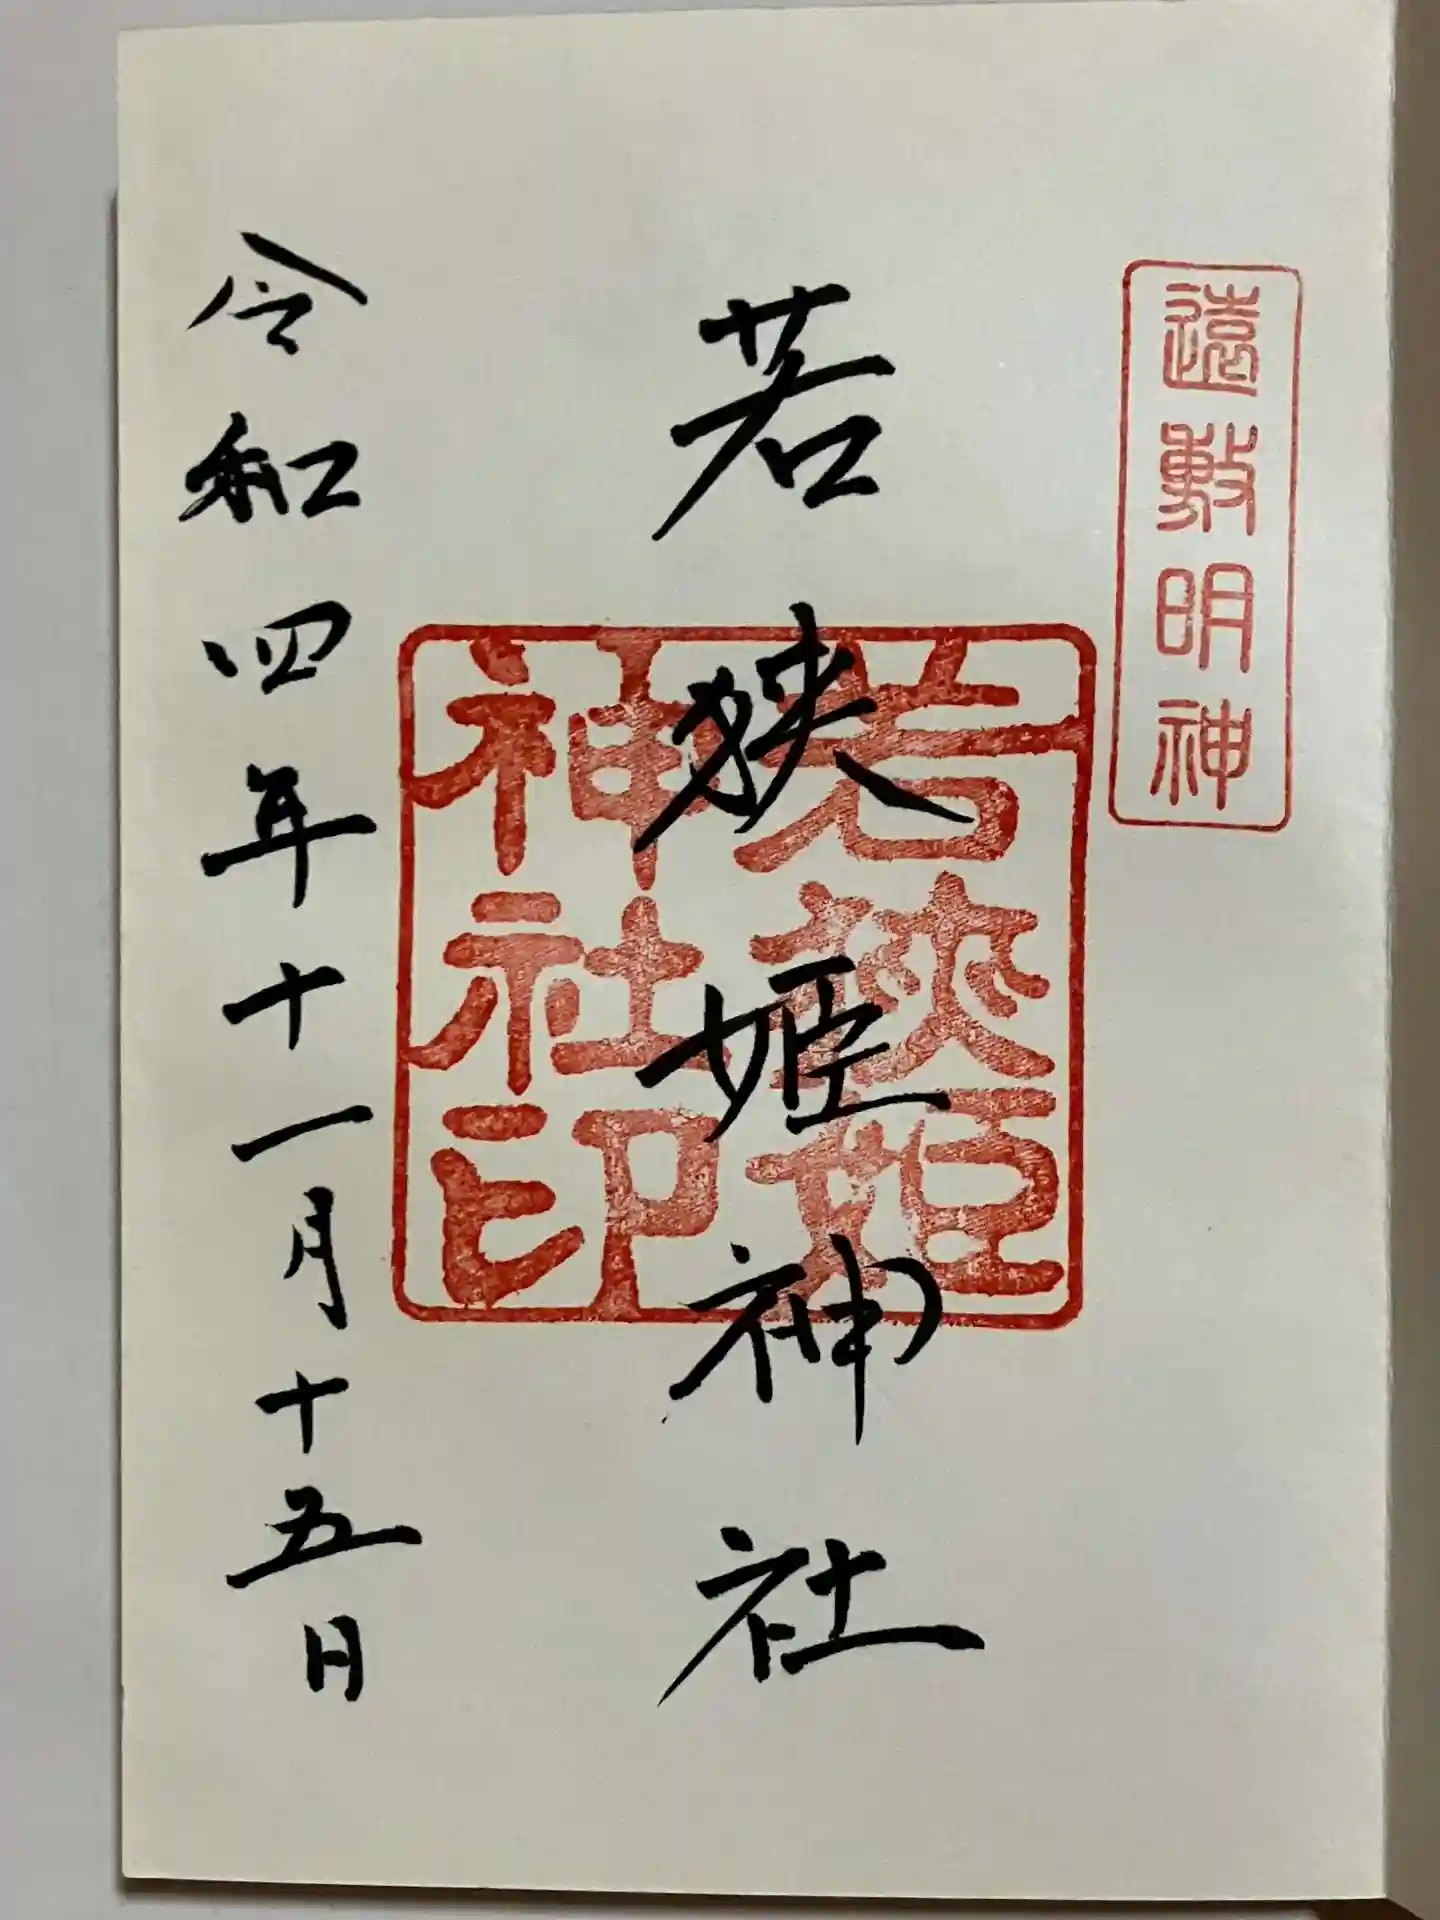 遠敷明神
若狹姫
神社印
若狭姫神社
令和四年十一月十五日